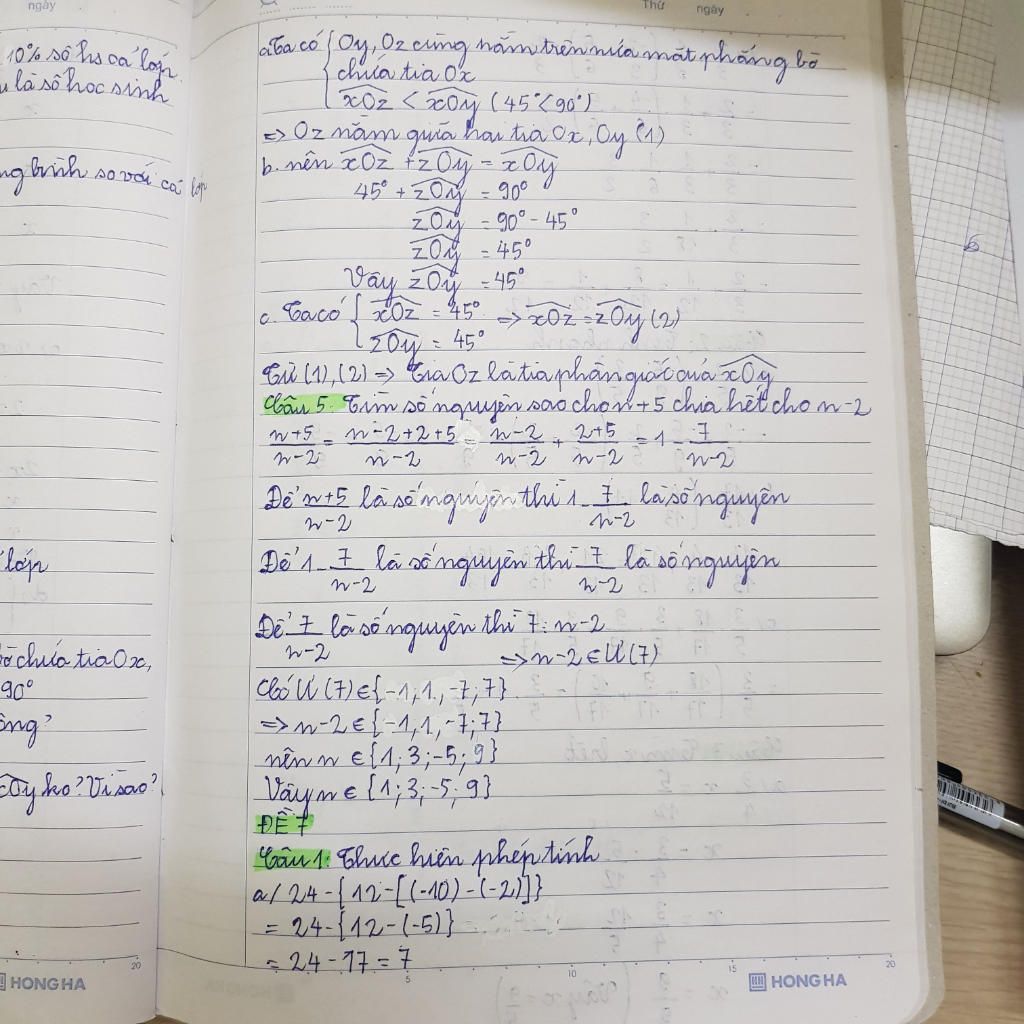 ngày
10% số hs cả lớp.
là số học sinh
ng bình so với cả lớp
lớp
bờ chứa tia Ox,
90°
ông?
xOy ko? Vì sao?
20
HONG HA
Thứ ngày
a. Ta có { Oy, Oz cùng nằm trên nửa mặt phẳng bờ
chứa tia Ox
xOz < xOy (45° < 90°)
=> Oz nằm giữa hai tia Ox, Oy (1)
b. nên xOz + zOy = xOy
45° + zOy = 90°
zOy = 90° - 45°
zOy = 45°
Vậy zOy = 45°
c. Ta có { xOz = 45° => xOz = zOy (2)
zOy = 45°
Từ (1), (2) => Tia Oz là tia phân giác của xOy
Câu 5: Tìm số nguyên sao cho n+5 chia hết cho n-2
n+5/n-2 = n-2+2+5/n-2 = n-2/n-2 + 2+5/n-2 = 1 - 7/n-2
Để n+5/n-2 là số nguyên thì 1 - 7/n-2 là số nguyên
Để 1 - 7/n-2 là số nguyên thì 7/n-2 là số nguyên
Để 7/n-2 là số nguyên thì 7 : n-2
=> n-2 ∈ Ư(7)
Có Ư(7) ∈ {-1, 1, -7; 7}
=> n-2 ∈ {-1, 1, -7; 7}
nên n ∈ {1; 3; -5; 9}
Vậy n ∈ {1; 3; -5; 9}
ĐỀ 7
Câu 1: Thực hiện phép tính
a/ 24 - {12 - [(-10) - (-2)]}
= 24 - {12 - (-5)}
= 24 - 17 = 7
5 10 15 20
HONG HA